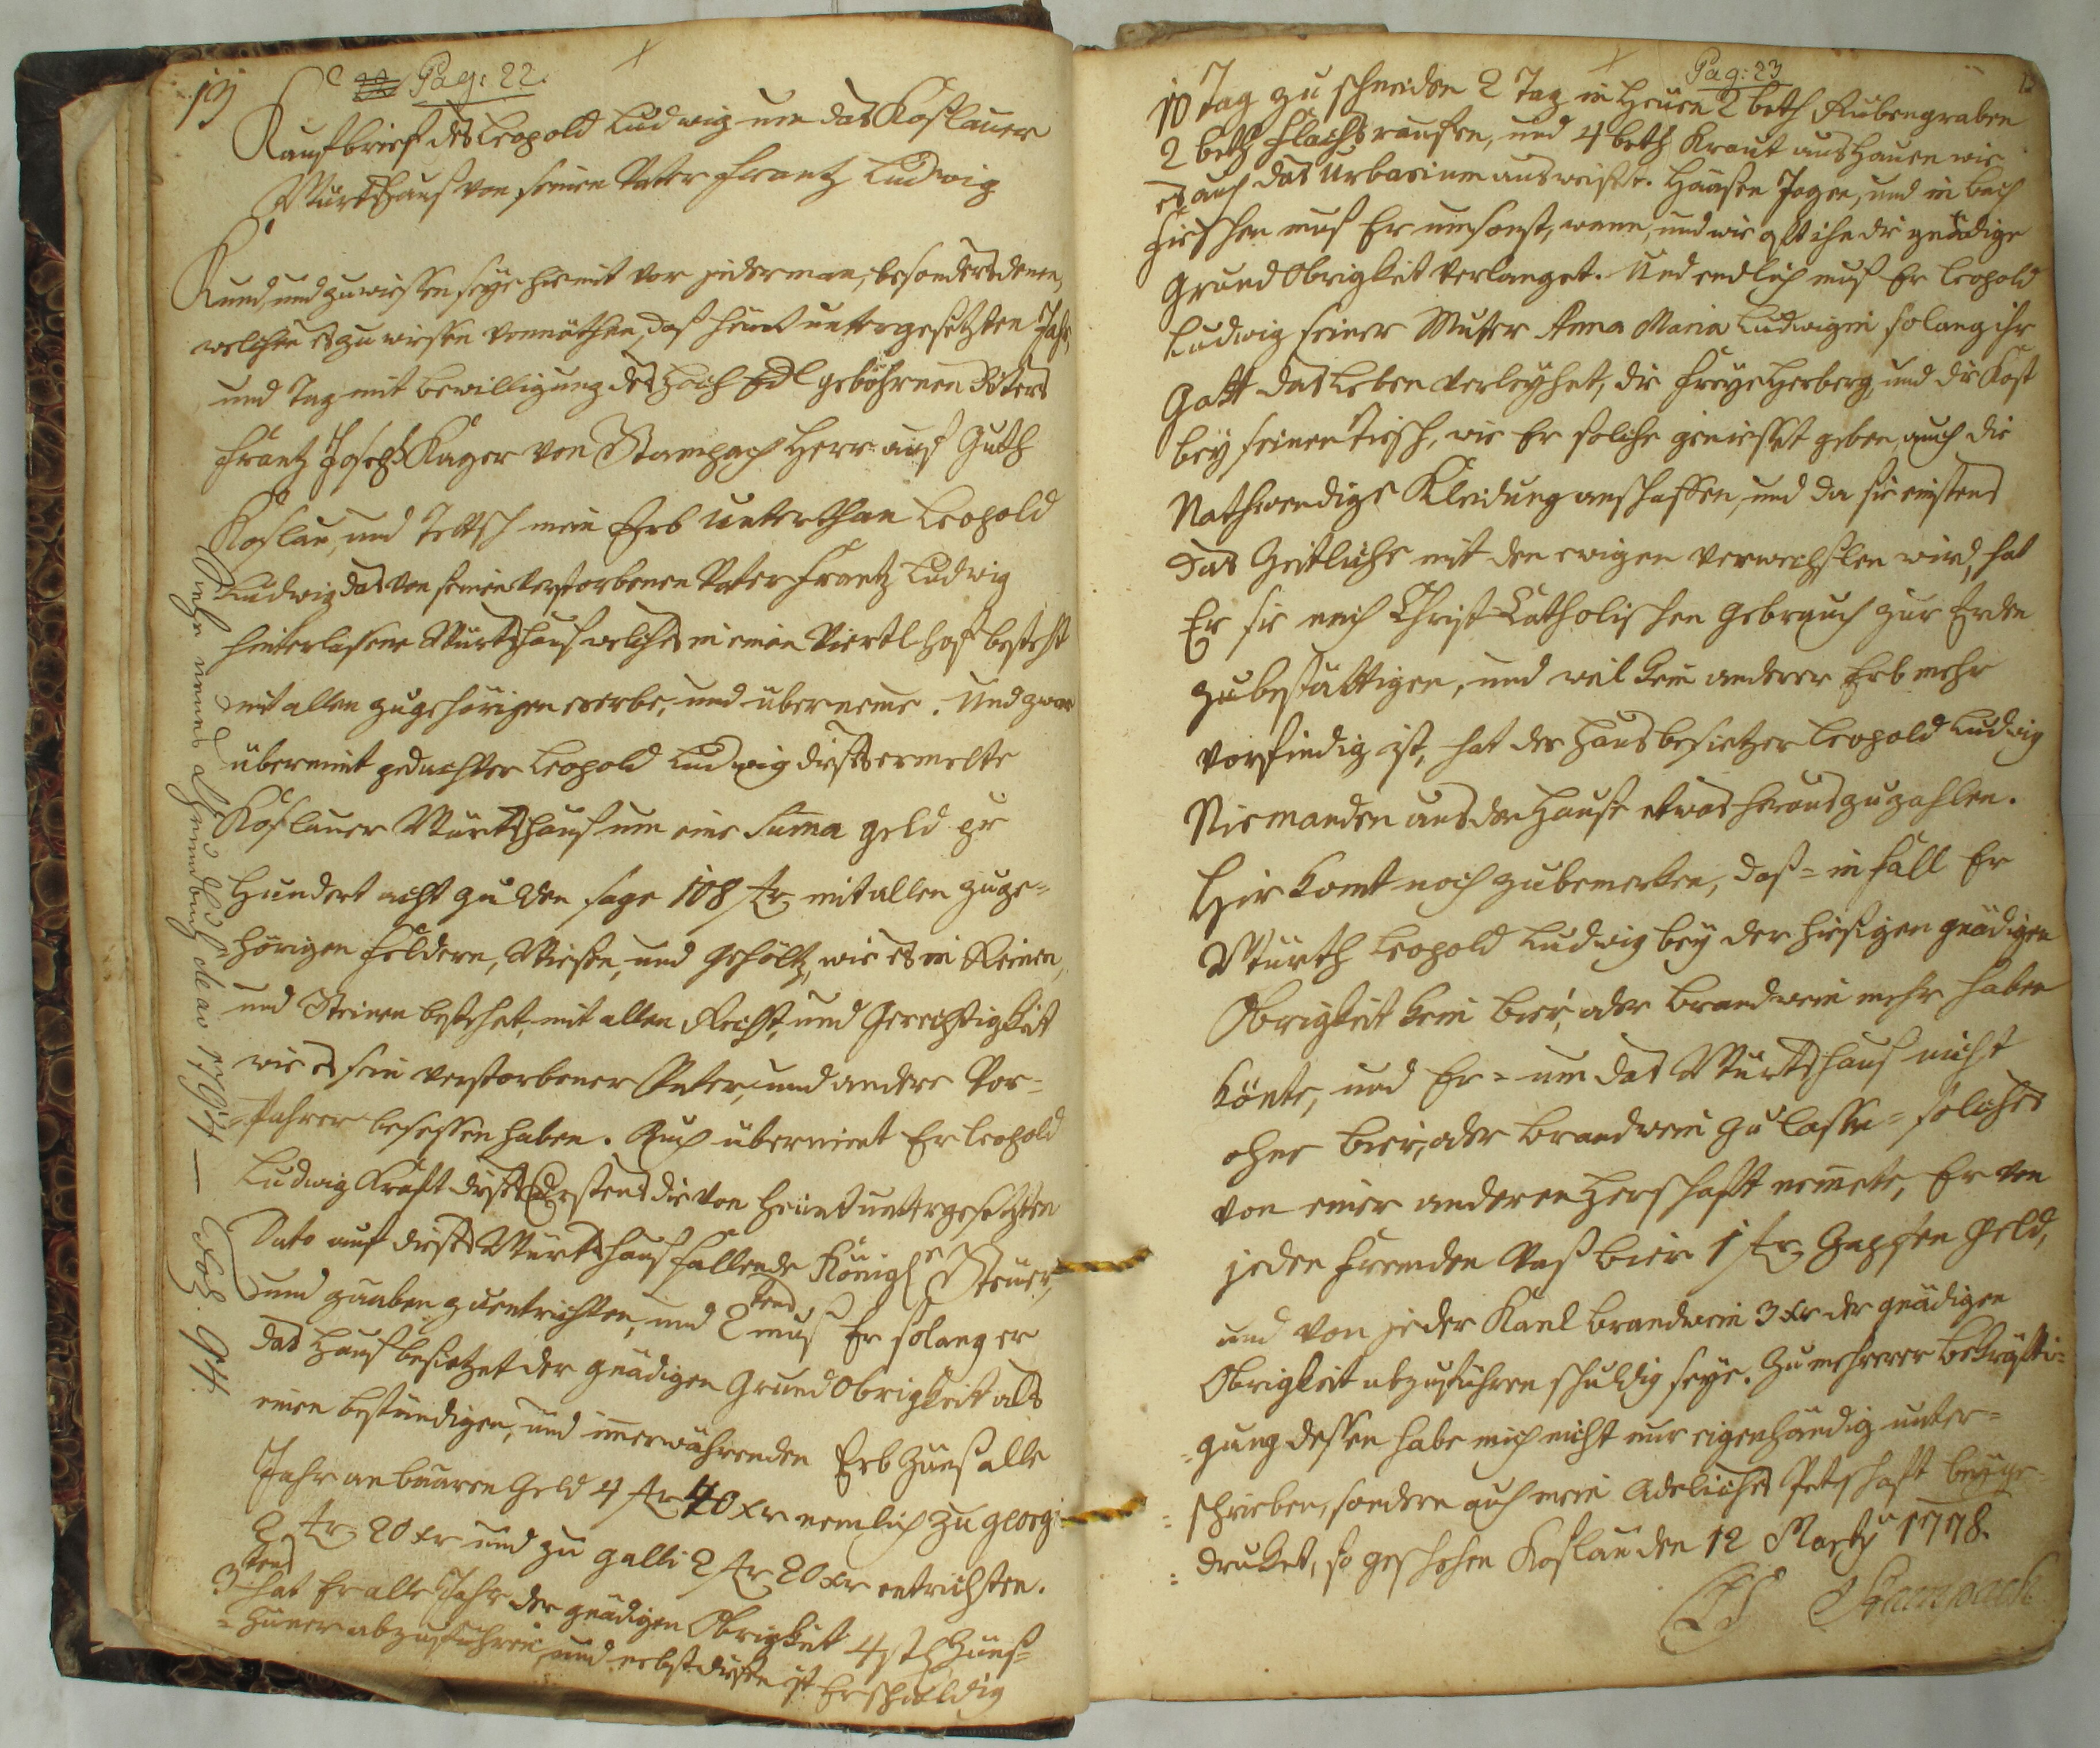 13
Pag: 22.
Kaufbrief des Leopold Ludwig um das Koslauer
Würtshauß von seinen Vater Frantz Ludwig
Kund, und zu wießen seye hiemit vor jederman, besonders denen,
welchen es zu wießen vonnöthen, daß heünt untergesetzten Jahr,
und Tag mit bewilligung des Hoch Edl gebohrnen Ritters
Frantz Joseph Kager von Stampach Herr auf Guth
Koslau, und Teltsch mein Erb Unterthan Leopold
Ludwig das von seinen verstorbenen Vater Frantz Ludwig
hinterlassene Würtshauß welches in einen Viertl Hof bestehet
mit allen zugehörigen ererbe, und überneme. Und zwar
übernimt gedachter Leopold Ludwig dießes ermelte
Koslauer Würtshauß um eine Suma geld pr
Hundert acht gulden sage 108 fr. mit allen zuge=
hörigen Feldern, Wießen, und gehöltz, wie es in Reinen,
und Steinen bestehet, mit allen Recht, und Gerechtigkeit
wie es sein verstorbener Vater, und andere Vor=
=fahrer besessen haben. Auch übernimt Er Leopold
Ludwig Kraft dießes Erstens die von heünt untergesetzten
Dato auf dießes Würtshauß fallende Königle Steüer,
und gaaben zu entrichten, und 2tens muß Er solang er
das Hauß besietzet der gnädigen Grund Obrigkeit als
einen beständigen, und imerwährenden Erb Zünß alle
Jahr an baaren Geld 4 fr 40 xr nemlich zu georgi
2 fr. 20 xr und zu galli 2 fr 20 xr entrichten.
3tens hat Er alle Jahr der gnädigen Obrigkeit 4 st Zünß=
=Hüner abzuführen, und nebst dießen ist Er schuldig
de ao 1794 — Fol. 94.
Pag: 23
10 Tag zu schneiden 2 Tag in Heuen 2 beth Rubengraben
2 beth Flachs rauffen, und 4 beth Kraut aushauen wie
es auch das Urbarium ausweiset. Haasen Jagen, und in bach
Fieschen muß Er umsonst, wenn, und wie oft ihn die gnädige
Grund Obrigkeit verlanget. Und endlich muß Er Leopold
Ludwig seiner Muter Anna Maria Ludwigin solang ihr
Gott das Leben verleyhet, die Freye Herberg, und die Kost
bey seinen Tiesch, wie Er solche geniesset geben, auch die
Nothwendige Kleidung anschaffen, und da sie einstens
das Zeitliche mit den ewigen verwechslen wird, hat
Er sie nach Christ-Catholischen gebrauch zur Erden
zubestättigen, und weil kein anderer Erb mehr
vorfindig ist, hat der Hausbesietzer Leopold Ludwig
Niemanden aus den Hauße etwas herauszuzahlen.
Hir komt noch zubemerken, daß = in fall Er
Würth Leopold Ludwig bey der hiesigen gnädigen
Obrigkeit kein bier, oder brandwein mehr haben
könte, und Er = um das Würtshauß nicht
ohne bier, oder brandwein zu lassen = solches
von einer anderen Herschaft nemete, Er von
jeden fremden Vaß bier 1 fr. Zapfen Geld,
und von jeder Kanl brandwein 3 xr der gnädigen
Obrigkeit abzuführen schuldig seye. Zu mehrerer bekräfti=
=gung dessen habe mich nicht nur eigenhändig unter=
=schrieben, sondern auch mein Adeliches Petschaft beyge=
=druket, so geschehen Koslau den 12 Marty 1778.
LS Stampach